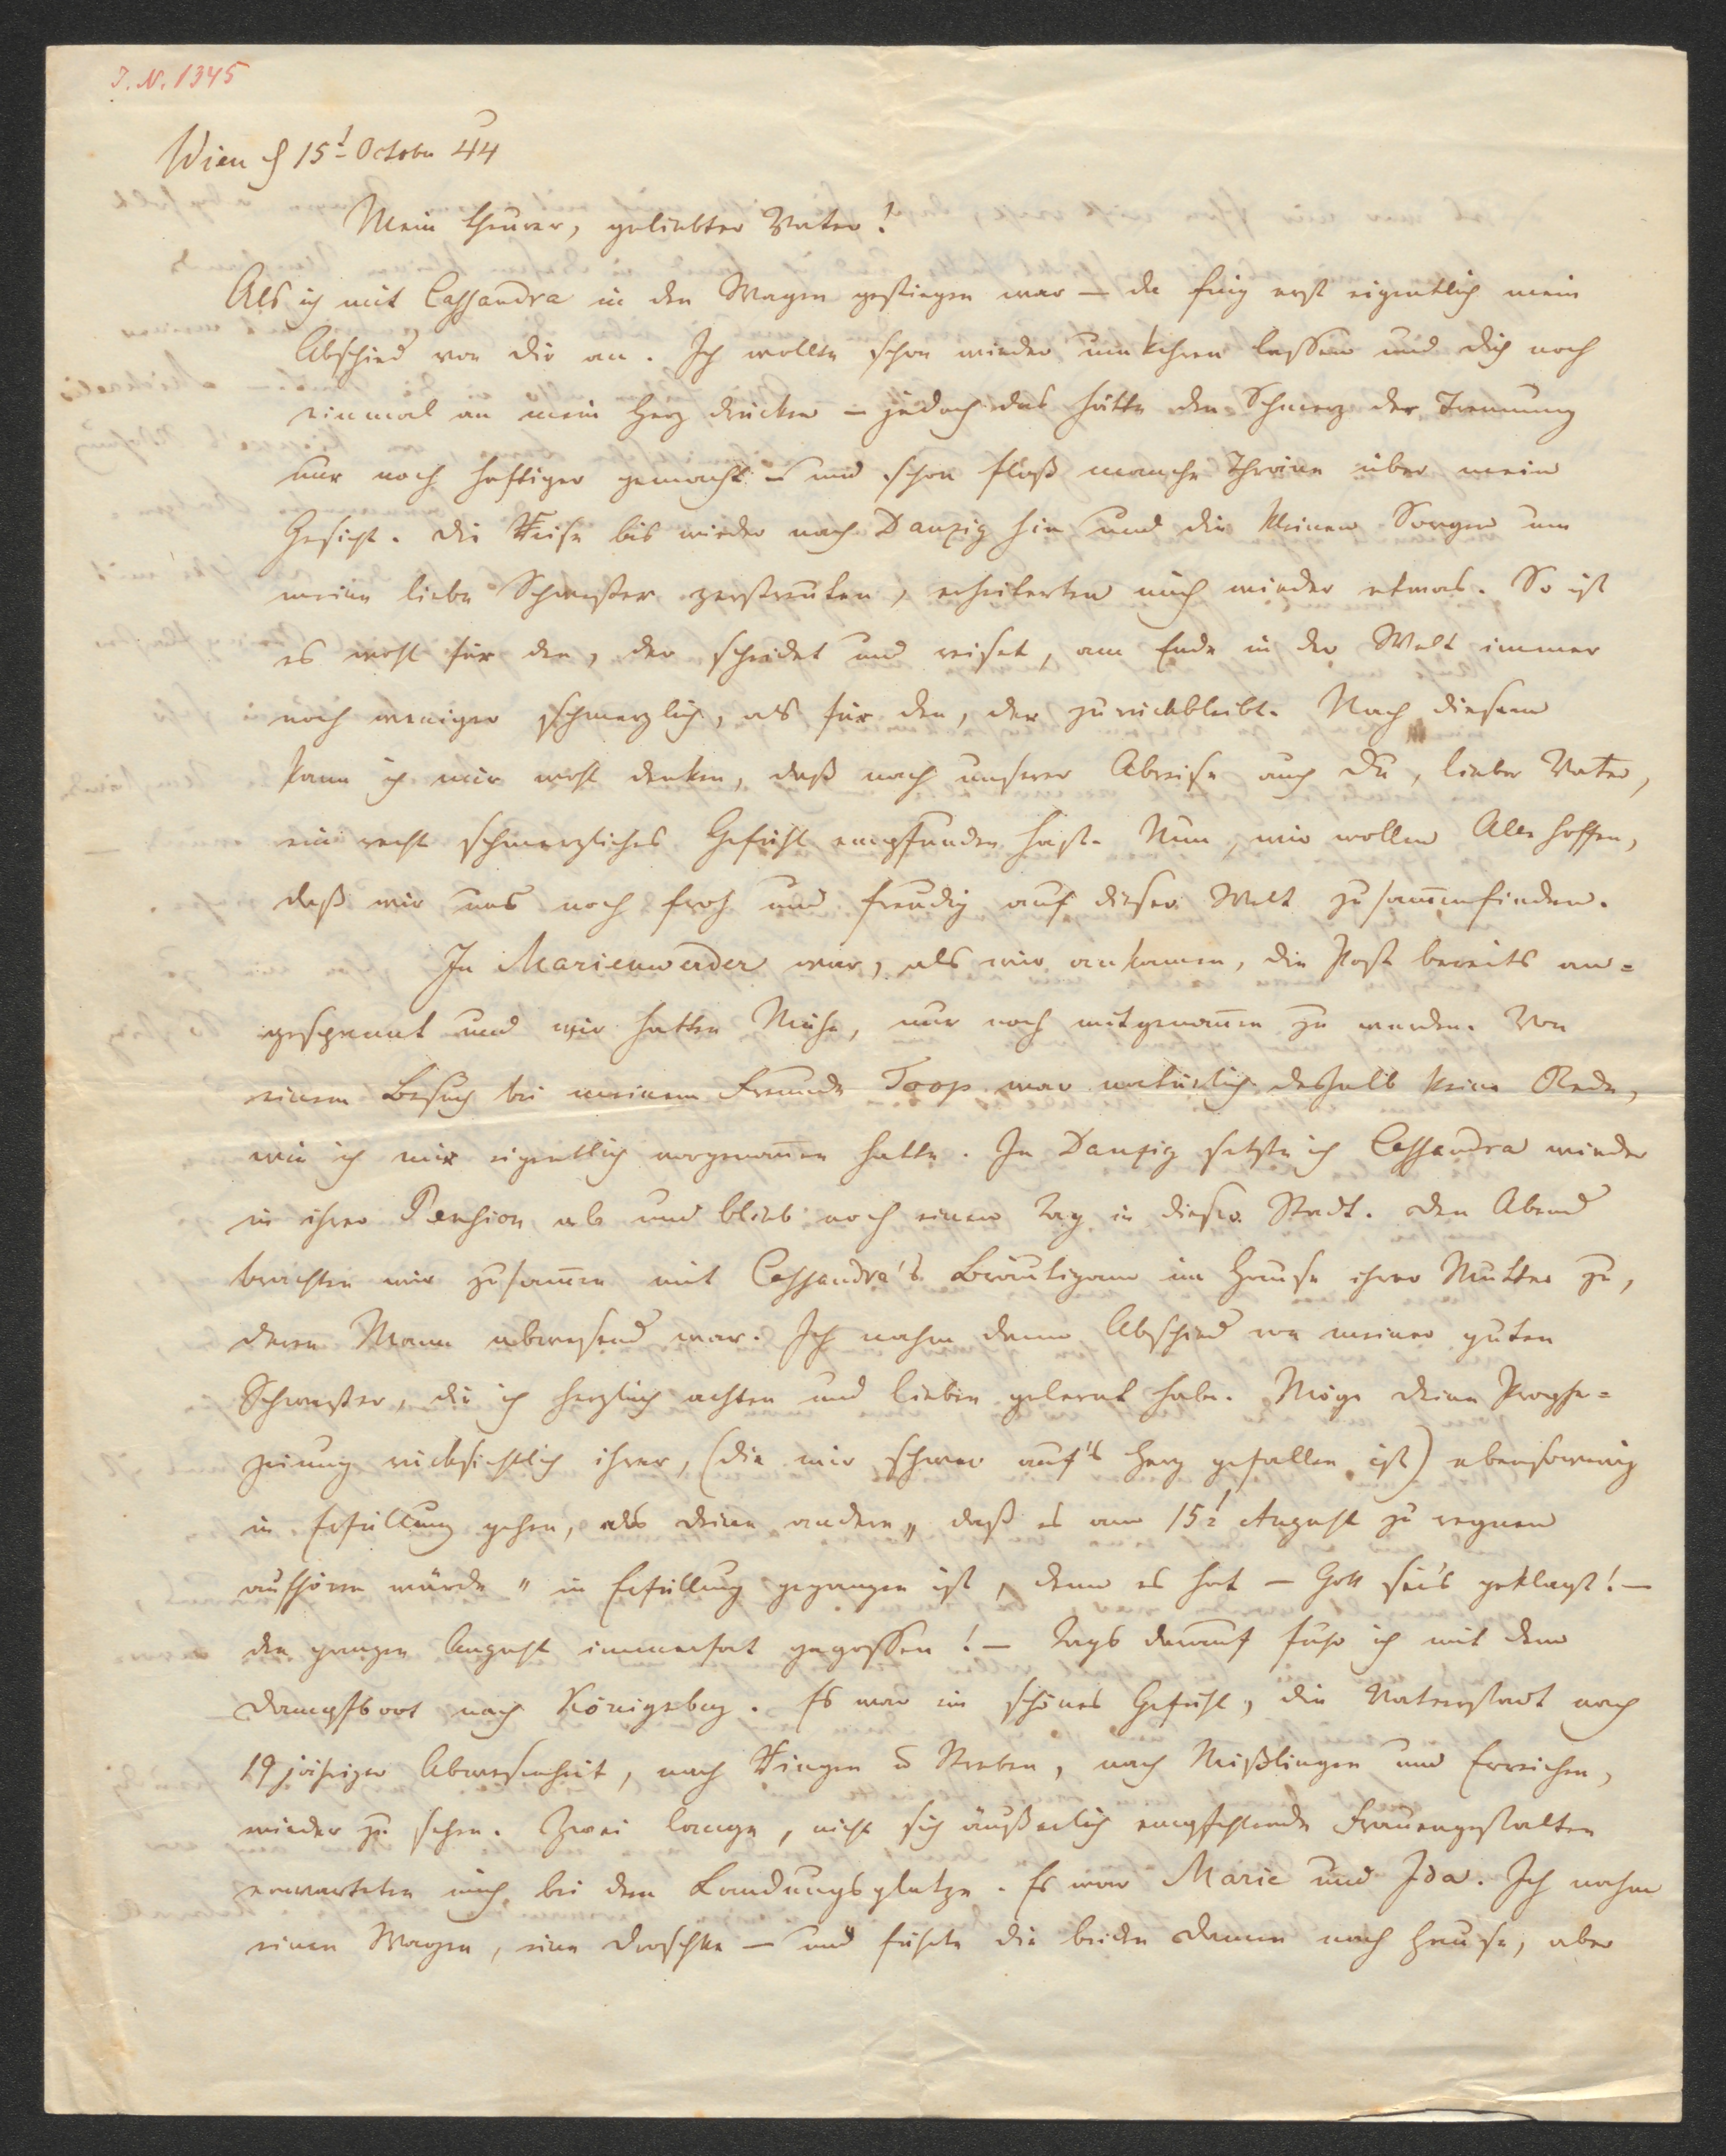 J. N. 1345
Wien d 15t October 44
Mein theurer, geliebter Vater!
Als ich mit Cassandra in den Wagen gestiegen war – da fing erst eigentlich mein
Abschied von dir an. Ich wollte schon wieder umkehren lassen und dich noch
einmal an mein Herz drücken – jedoch das hätte den Schmerz der Trennung
nur noch heftiger gemacht – und schon floß manche Thräne über mein
Gesicht. Die Reise bis wieder nach Danzig hin und die kleinen Sorgen um
meine liebe Schwester zerstreuten, erheiterten mich wieder etwas. So ist
es wohl für den, der scheidet und reiset, am Ende in der Welt immer
noch weniger schmerzlich, als für den, der zurückbleibt. Nach diesem
kann ich mir wohl denken, daß nach unserer Abreise auch du, lieber Vater,
ein recht schmerzliches Gefühl empfunden hast. Nun, wir wollen Alle hoffen,
daß wir uns noch froh und freudig auf dieser Welt zusam̅enfinden.
In Marienwerder war, als wir ankamen, die Post bereits an=
gespannt und wir hatten Mühe, nur noch mitgenom̅en zu werden. Von
einem Besuch bei meinem Freunde Toop war natürlich deshalb keine Rede,
wie ich mir eigentlich vorgenom̅en hatte. In Danzig setzte ich Cassandra wieder
in ihrer Pension ab und blieb noch einen Tag in dieser Stadt. Den Abend
brachten wir zusam̅en mit Cassandra's Bräutigam im Hause ihrer Mutter zu,
deren Mann abwesend war. Ich nahm dann Abschied von meiner guten
Schwester, die ich herzlich achten und lieben gelernt habe. Möge deine Prophe=
zeiung rücksichtlich ihrer, (die mir schwer auf's Herz gefallen ist) ebensowenig
in Erfüllung gehen, als deine andere, „daß es am 15t August zu regnen
aufhören würde" in Erfüllung gegangen ist, denn es hat – Gott sei's geklagt! –
den ganzen August immerfort gegossen! – Tags darauf fuhr ich mit dem
Dampfboot nach Königsberg. Es war ein schönes Gefühl, die Vaterstadt nach
19 jähriger Abwesenheit, nach Ringen u̅ Streben, nach Mißlingen und Erreichen,
wieder zu sehen. Zwei lange, nicht sich äußerlich empfehlende Frauengestalten
erwarteten mich bei dem Landungsplatze. Es war Marie und Ida. Ich nahm
einen Wagen, eine Droschke – und führte die beiden Damen nach Hause, aber